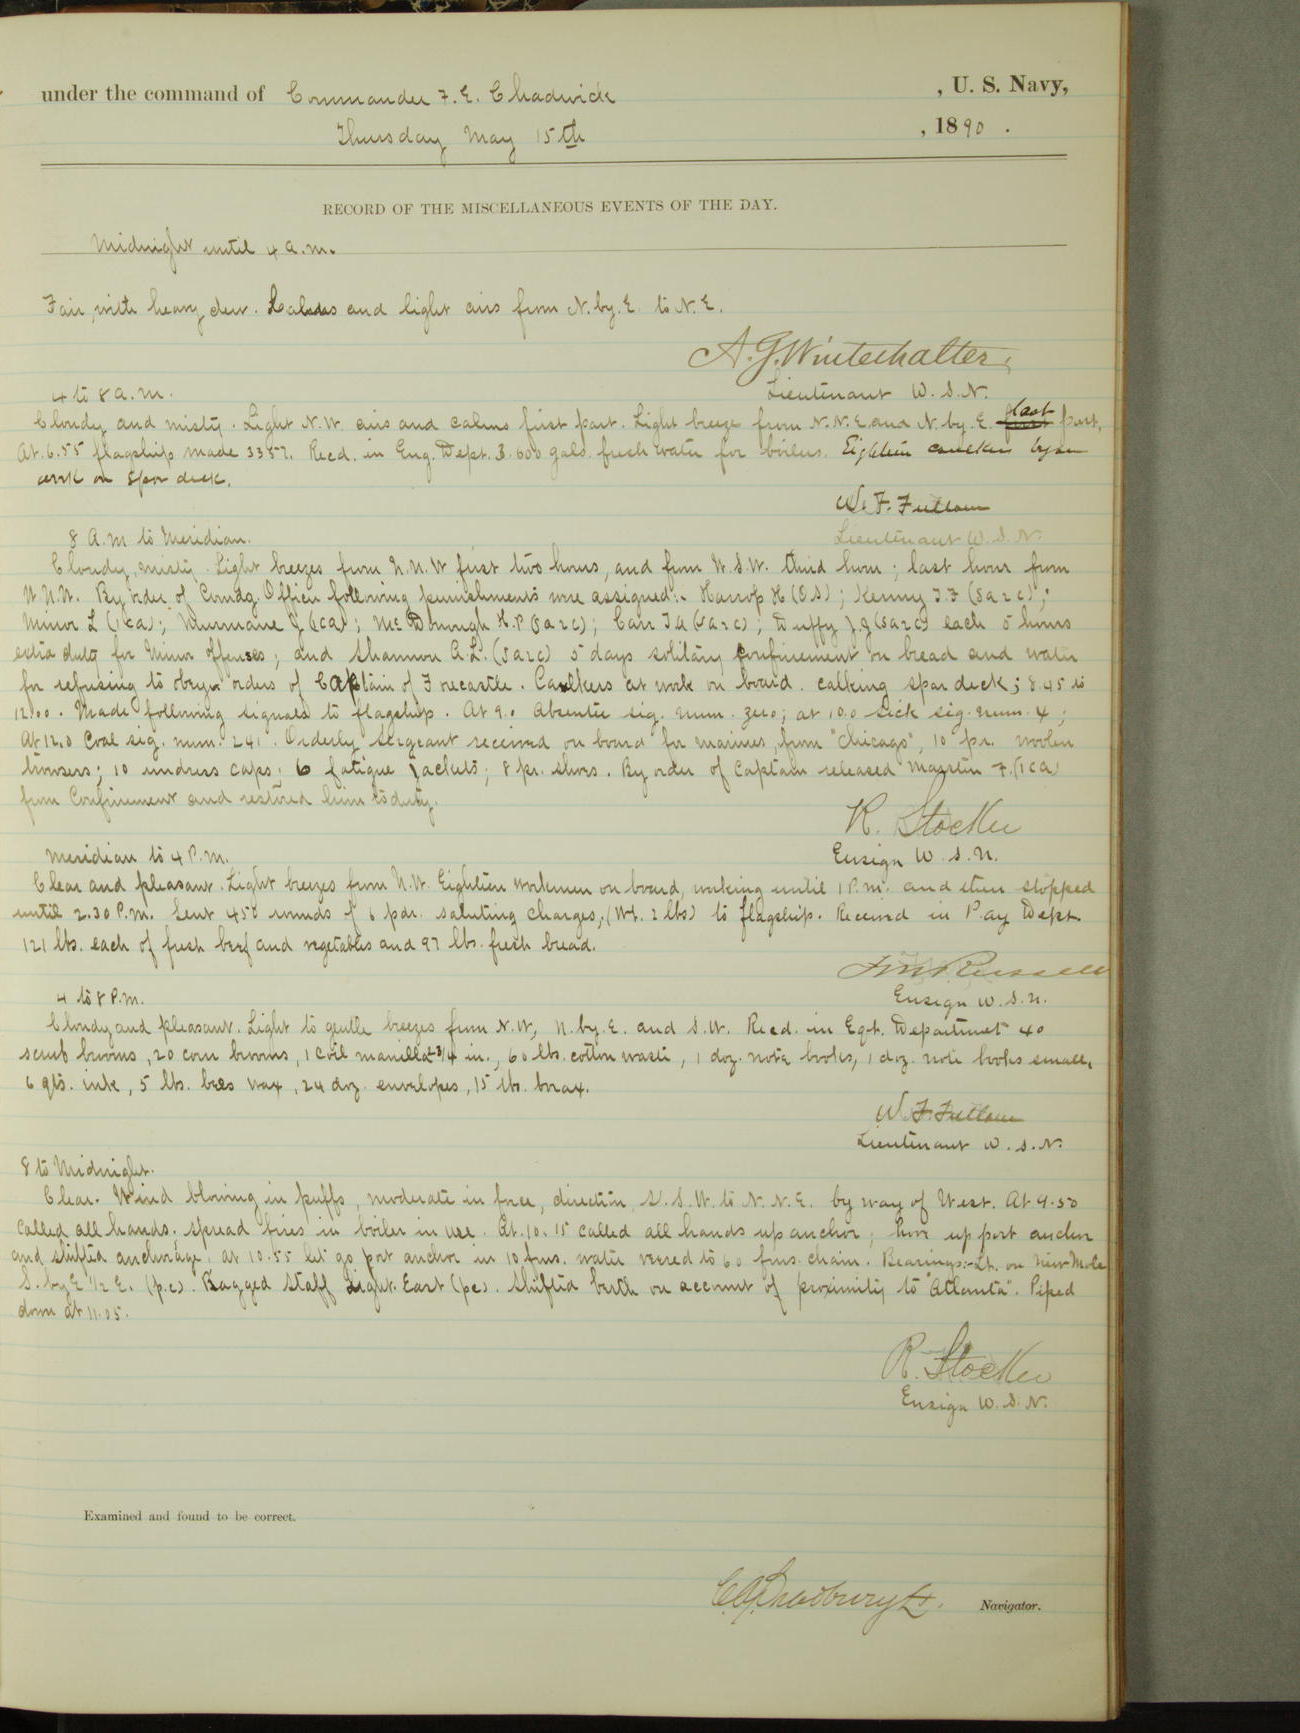 under the command of Commander F. E. Chadwick , U. S. Navy,
Thursday May 15th , 1890 .
RECORD OF THE MISCELLANEOUS EVENTS OF THE DAY.
Midnight until 4 a.m.
Fair, with heavy dew. Calms and light airs from N. by. E. to N. E.
A. G. Winterhalter,
Lieutenant U. S. N.
4 to 8 a.m.
Cloudy and misty. Light N.W. airs and calms first part. Light breeze from N.N.E. and N. by. E. last part.
At 6.55 flagship made 3357. Recd. in Eng. Dept. 3.600 gals. fresh water for boilers. Eighteen caulkers began
work on Spar deck.
W. F. Fullam
Lieutenant U. S. N.
8 A.M to Meridian.
Cloudy, misty. Light breezes from N.N.W first two hours, and from W.S.W. third hour; last hour from
W.N.W. By order of Comdg. Officer following punishments were assigned:- Harrop H (OS); Kenny J. F (Sa 2c);
Minor L (1ca); Murmane J (1ca); Mc Donough H. P (Sa2c); Carr J A (Sa2c); Duffy J. J (Sa2c) each 5 hours
extra duty for Minor Offenses; and Shannon A. L. (Sa2c) 5 days solitary confinement on bread and water
for refusing to obey orders of Captain of Forecastle. Caulkers at work on board. calking spar deck; 8.45 to
12.00. Made following signals to flagship. At 9.0 Absentee sig. num. zero; at 10.0 sick sig. num. 4;
At 12.0 Coal sig. num. 241. Orderly Sergeant received on board for marines, from "Chicago", 10 pr. woolen
trousers; 10 undress caps; 6 fatigue jackets; 8 pr. shoes. By order of Captain released Masstin F. (1ca)
from Confinement and restored him to duty.
R. Stocker
Ensign U. S. N.
Meridian to 4 P.M.
Clear and pleasant. Light breezes from N.W. Eighteen workmen on board, working until 1 P.M. and then stopped
until 2.30 P.M. Sent 450 rounds of 6 pdr. saluting charges, (Wt. 2 lbs) to flagship. Received in Pay Dept
121 lbs. each of fresh beef and vegetables and 97 lbs. fresh bread.
Russell
Ensign U. S. N.
4 to 8 P.M.
Cloudy and pleasant. Light to gentle breezes from N.W, N. by. E. and S.W. Recd. in Eqt. Department 40
scrub brooms, 20 corn brooms, 1 coil manilla 2 3/4 in., 60 lbs. cotton waste, 1 doz. note books, 1 doz. note books small,
6 qts. ink, 5 lbs. bees wax, 24 doz. envelopes, 15 lbs. borax.
W. F. Fullam
Lieutenant U. S. N.
8 to Midnight.
Clear. Wind blowing in puffs, moderate in force, direction S.S.W. to N. N. E. by way of West. At 9.50
called all hands. spread fires in boiler in use. At. 10.15 called all hands up anchor; hove up port anchor
and shifted anchorage; at 10.55 let go port anchor in 10 fms. water veered to 60 fms. chain. Bearings:- Lt. on New Mole
S. by E 1/2 E. (p.c). Ragged Staff Light. East (pc). Shifted berth on account of proximity to "Atlanta". Piped
down at 11.05.
R. Stocker
Ensign U. S. N.
Examined and found to be correct.
Navigator.